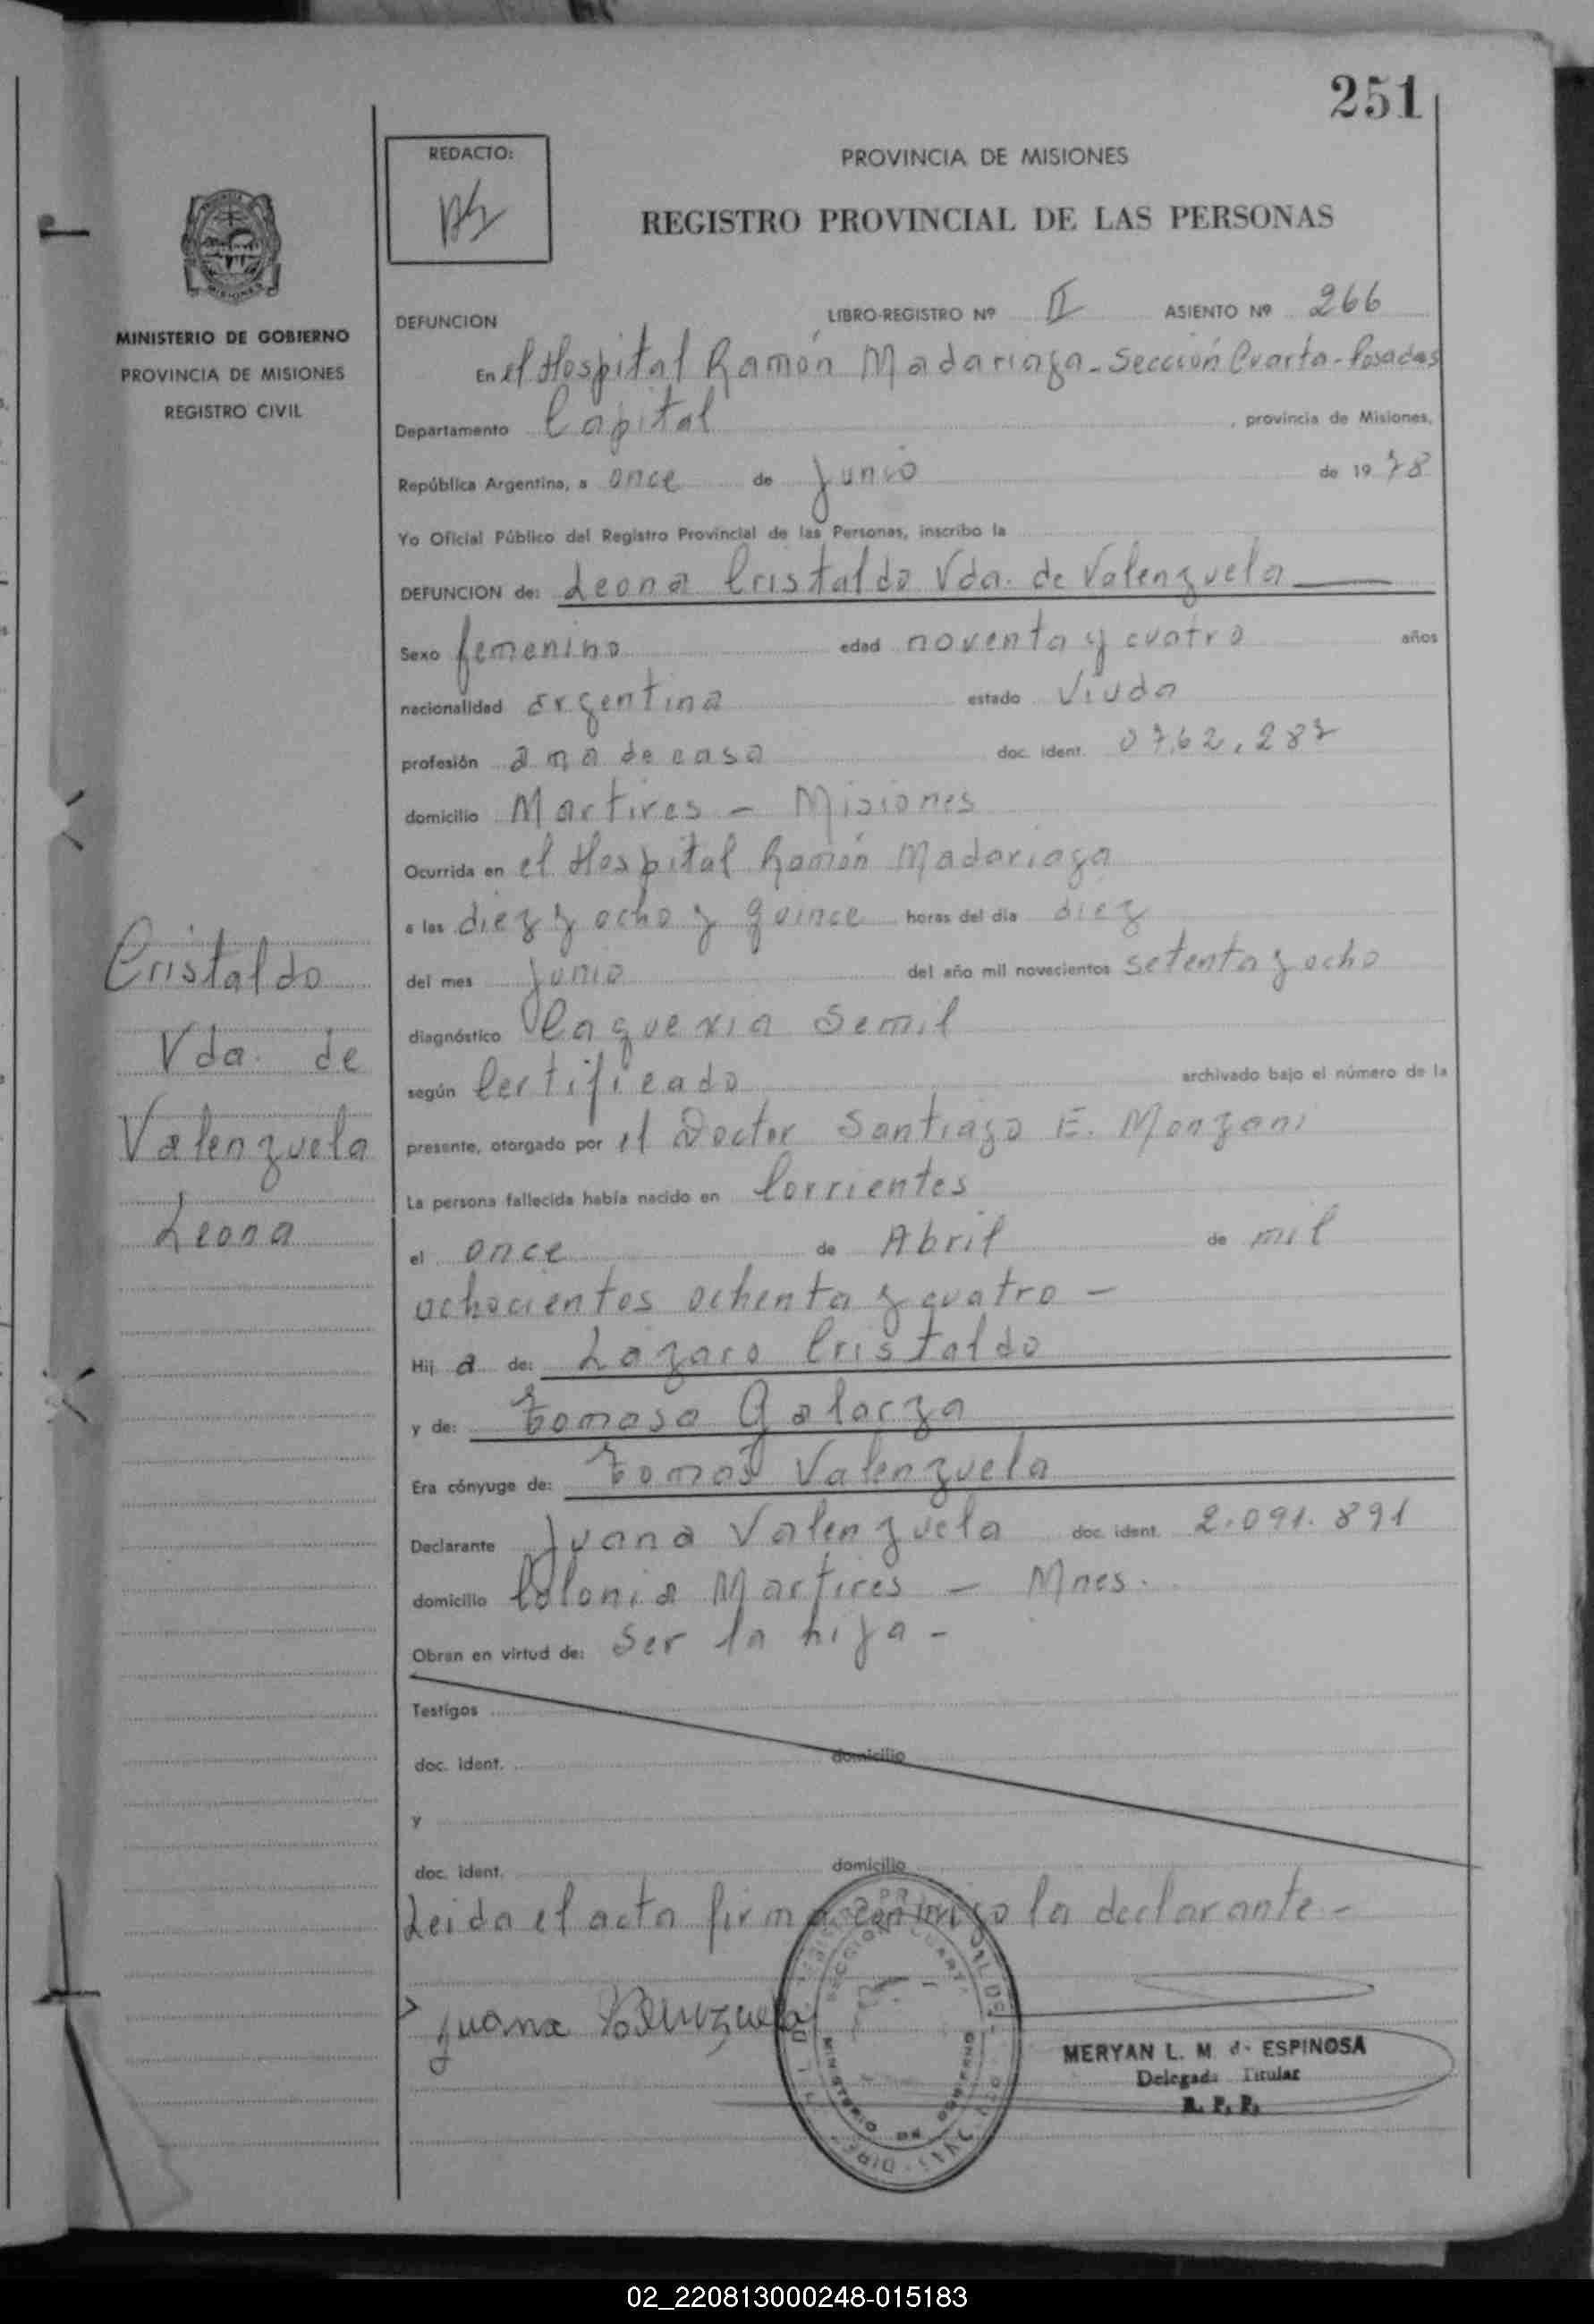 251
REDACTO:
PROVINCIA DE MISIONES
REGISTRO PROVINCIAL DE LAS PERSONAS
MINISTERIO DE GOBIERNO
PROVINCIA DE MISIONES
REGISTRO CIVIL
DEFUNCION LIBRO-REGISTRO Nº II ASIENTO Nº 266
En el Hospital Ramón Madariaga - Sección Cuarta - Posadas
Departamento Capital , provincia de Misiones,
República Argentina, a once de Junio de 1978
Yo Oficial Público del Registro Provincial de las Personas, inscribo la
DEFUNCION de: Leona Cristaldo Vda. de Valenzuela
Sexo femenino edad noventa y cuatro años
nacionalidad argentina estado Viuda
profesión ama de casa doc. ident. 0762.287
domicilio Martires - Misiones
Ocurrida en el Hospital Ramón Madariaga
a las diez y ocho y quince horas del día diez
del mes Junio del año mil novecientos setenta y ocho
diagnóstico Caquexia Semil
según Certificado archivado bajo el número de la
presente, otorgado por el Doctor Santiago E. Monzani
La persona fallecida había nacido en Corrientes
el once de Abril de mil
ochocientos ochenta y cuatro -
Hij a de: Lazaro Cristaldo
y de: Tomasa Galarza
Era cónyuge de: Tomas Valenzuela
Declarante Juana Valenzuela doc. ident. 2.091.891
domicilio Colonia Martires - Mnes.
Obran en virtud de: Ser la hija -
Testigos
doc. ident. domicilio
y
doc. ident. domicilio
Leida el acta firma conmigo la declarante -
Juana Valenzuela
MERYAN L. M. de ESPINOSA
Delegada Titular
R. P. P.
Cristaldo
Vda. de
Valenzuela
Leona
SECCION CUARTA
MINISTERIO DE GOBIERNO
02_220813000248-015183